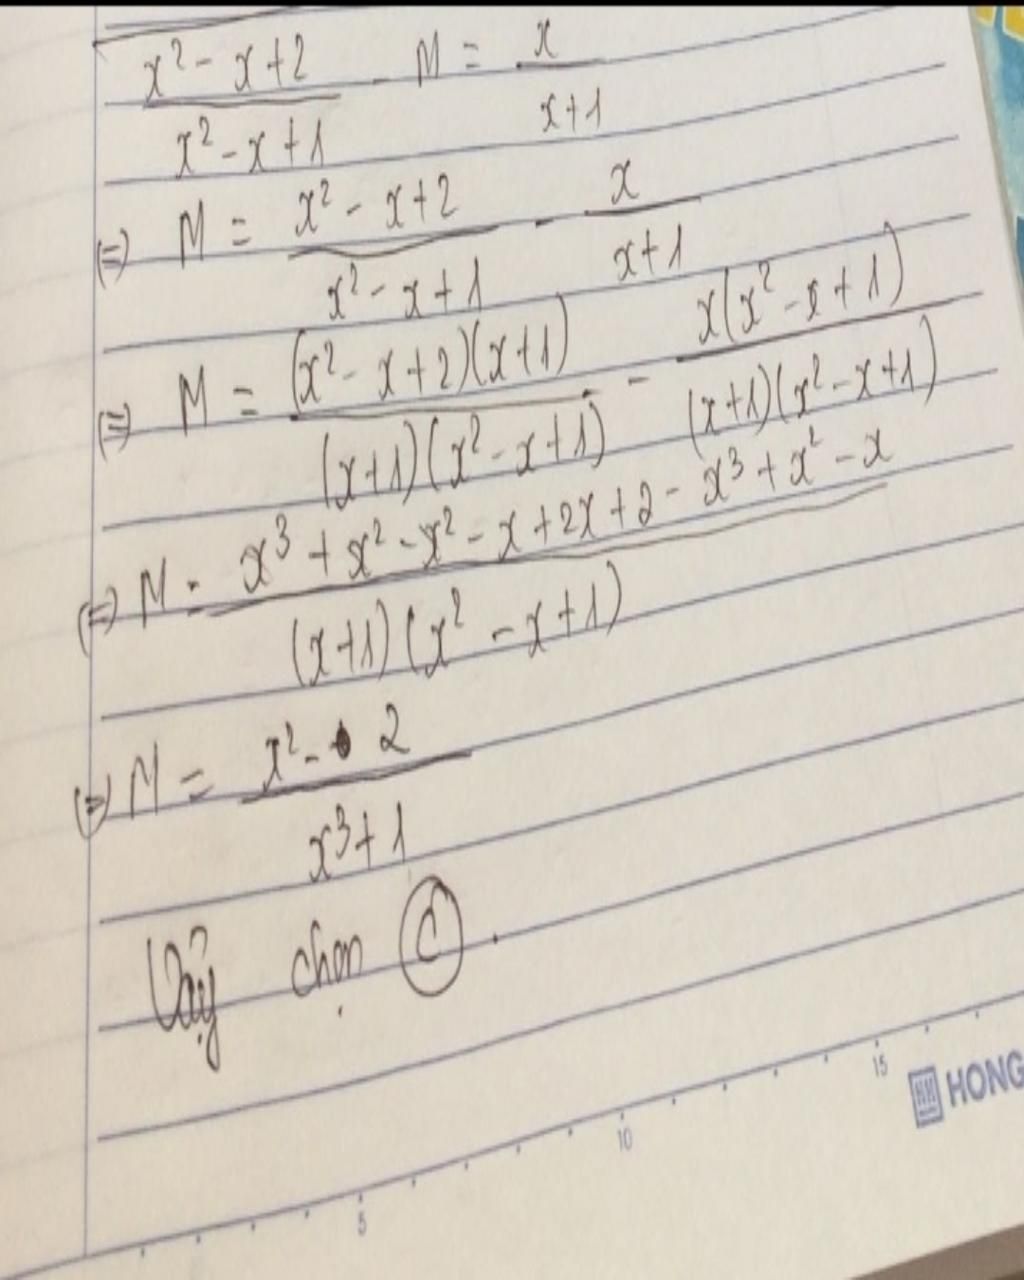 x² - x + 2 / x² - x + 1 - M = x / x + 1
(=) M = x² - x + 2 / x² - x + 1 - x / x + 1
(=) M = (x² - x + 2)(x + 1) / (x + 1)(x² - x + 1) - x(x² - x + 1) / (x + 1)(x² - x + 1)
(=) M = x³ + x² - x² - x + 2x + 2 - x³ + x² - x / (x + 1)(x² - x + 1)
(=) M = x² - 2 / x³ + 1
Vậy chọn C.
5 10 15
HH HONG